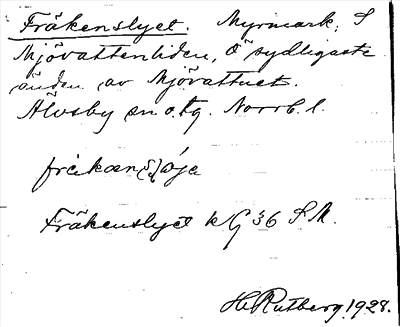 Fräkenslyet. Myrmark, S
Mjövattenliden, O sydligaste
änden av Mjövattnet.
Älvsby sn o. tg. Norrb. l.
Fräkenslyet kG 36 S.M.
H. Rutberg 1928.